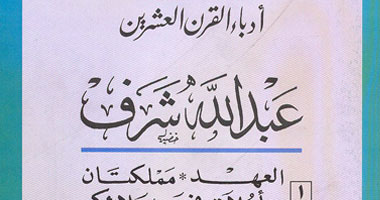 أدباء القرن العشرين
عبد الله شرف
العهد * مملكتان
١